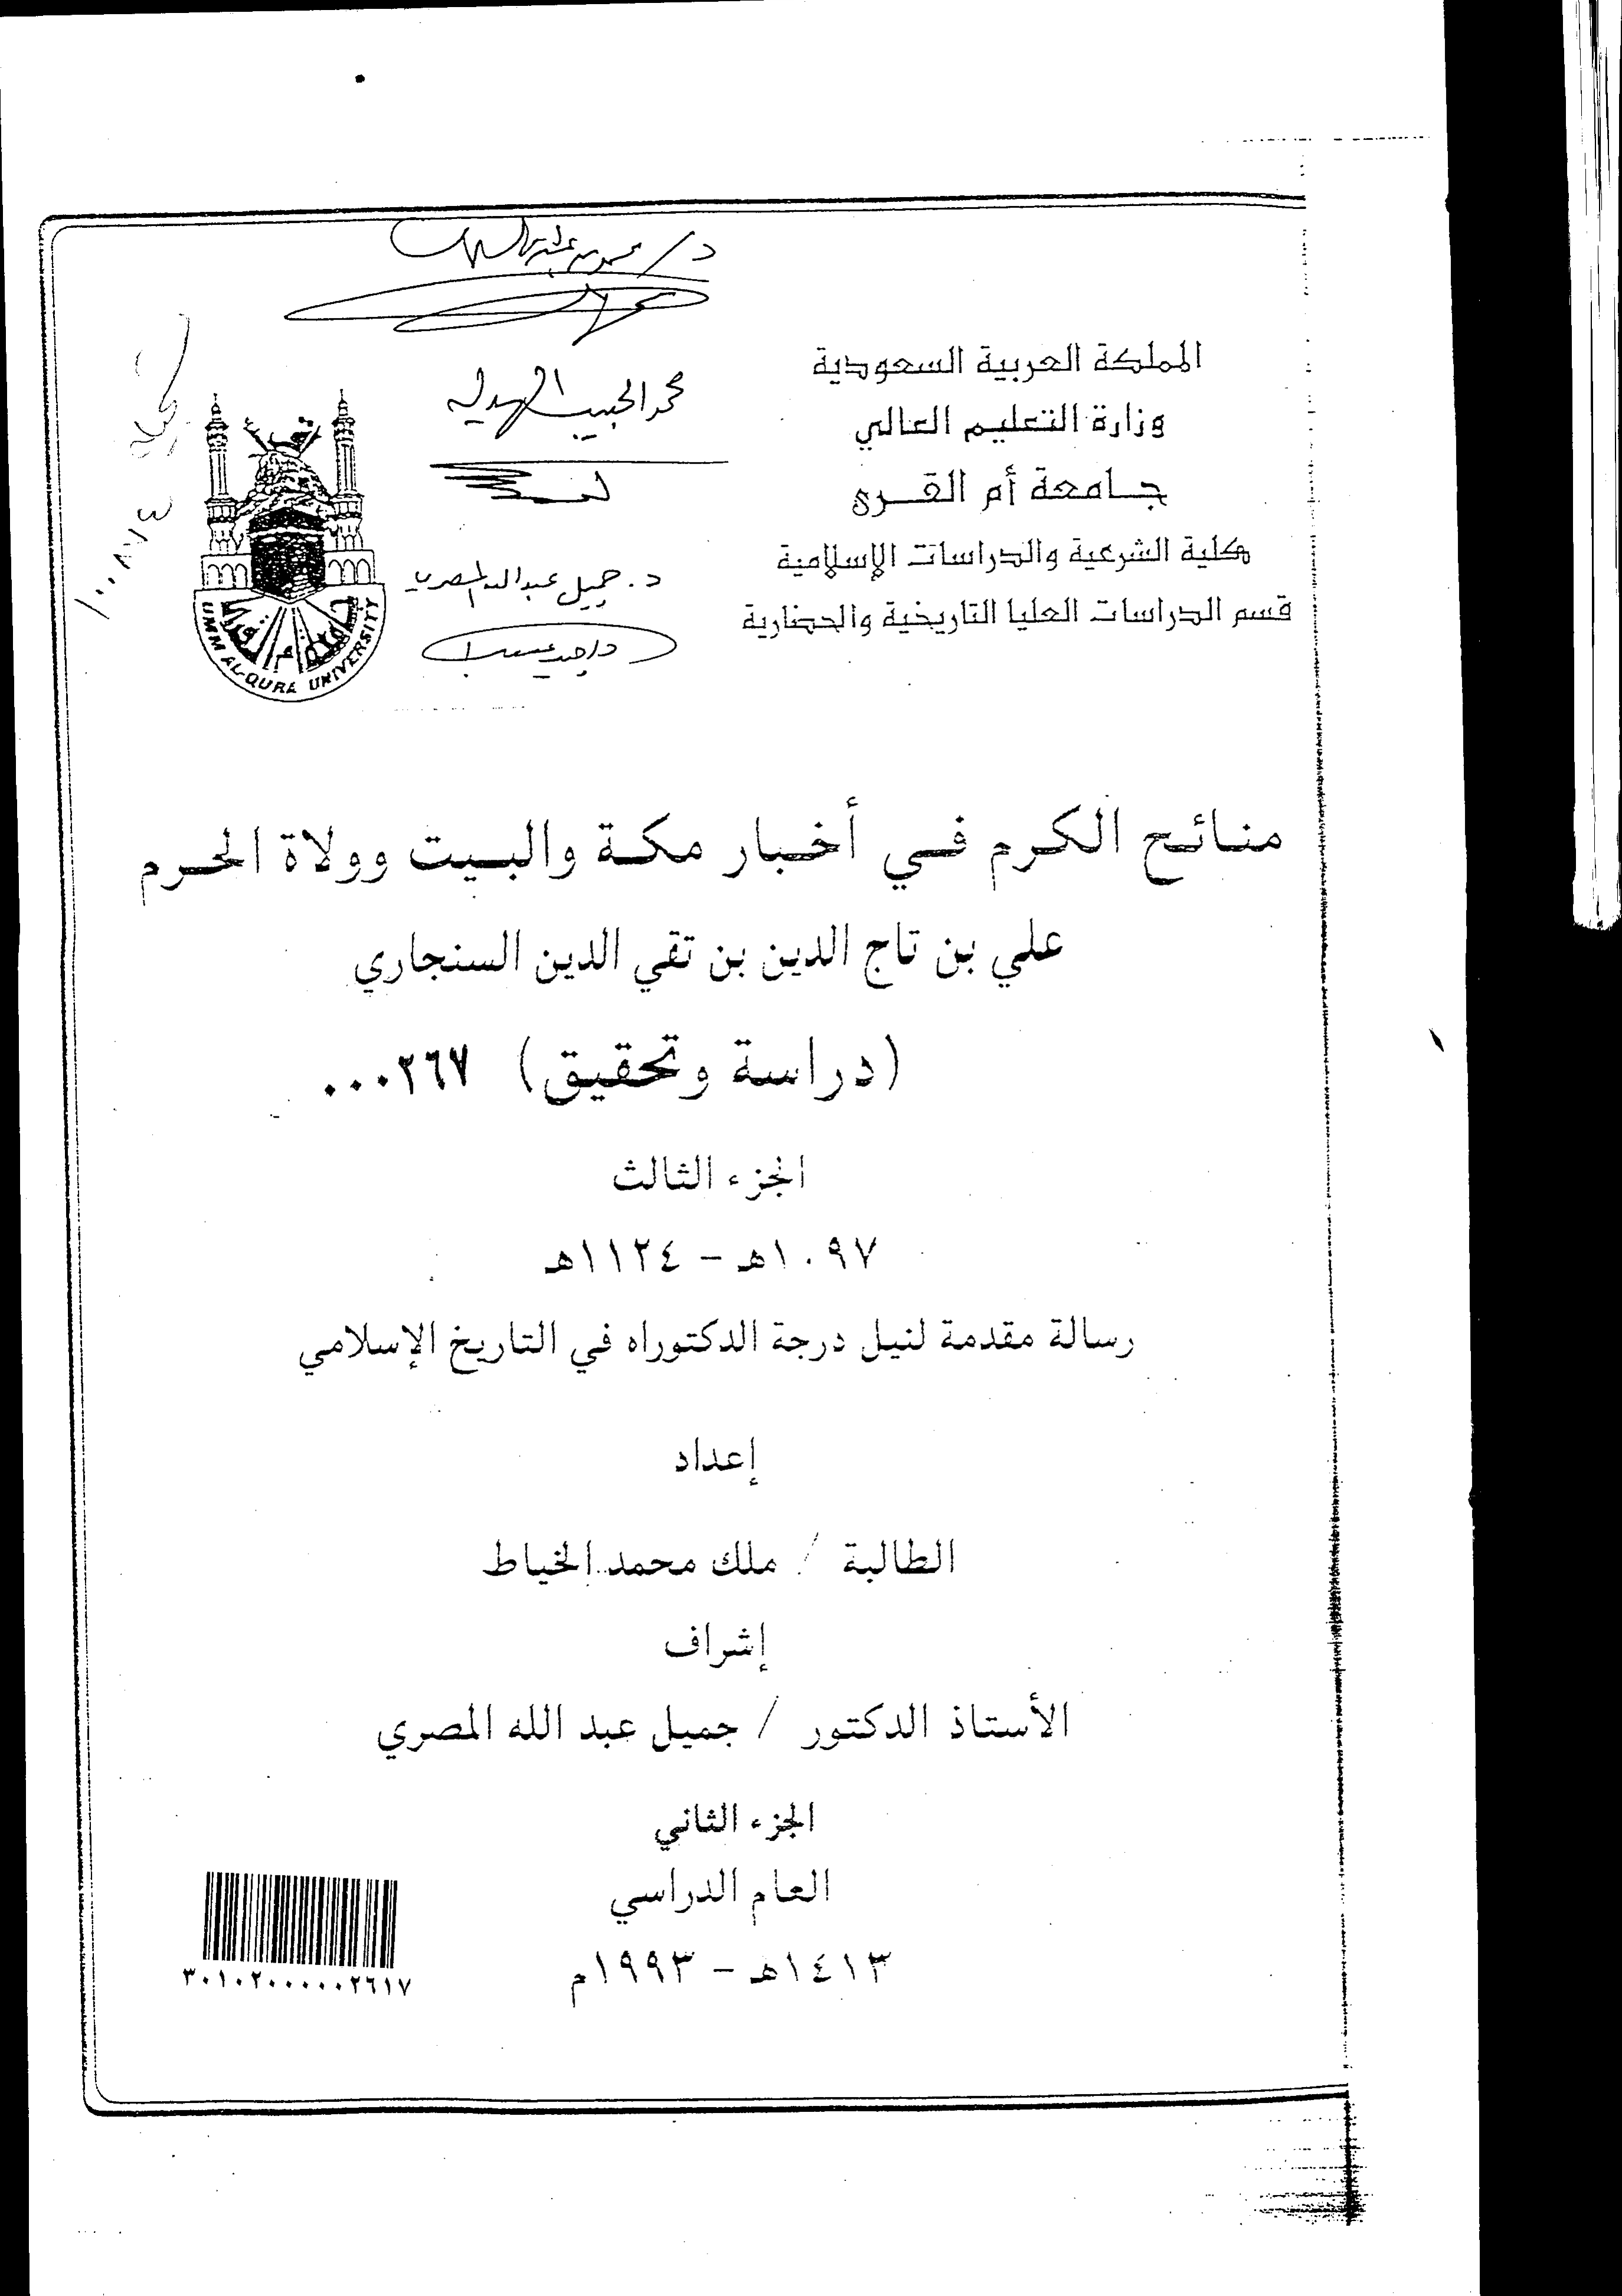 المملكة العربية السعودية
وزارة التعليم العالي
جامعة أم القرى
كلية الشرعية والدراسات الإسلامية
قسم الدراسات العليا التاريخية والحضارية
محمد الحبيب الهيله
د. جميل عبد الله المصري
UMM AL-QURA UNIVERSITY
منائح الكرم في أخبار مكة والبيت وولاة الحرم
علي بن تاج الدين بن تقي الدين السنجاري
(دراسة وتحقيق) ٠٠٠٢٦٧
الجزء الثالث
١٠٩٧هـ - ١١٢٤هـ
رسالة مقدمة لنيل درجة الدكتوراه في التاريخ الإسلامي
إعداد
الطالبة / ملك محمد الخياط
إشراف
الأستاذ الدكتور / جميل عبد الله المصري
الجزء الثاني
العام الدراسي
١٤١٣هـ - ١٩٩٣م
٣٠١٠٢٠٠٠٠٠٢٦١٧